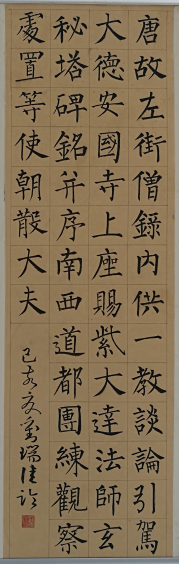 唐故左街僧錄內供一教談論引駕
大德安國寺上座賜紫大達法師玄
秘塔碑銘并序南西道都團練觀察
處置等使朝散大夫